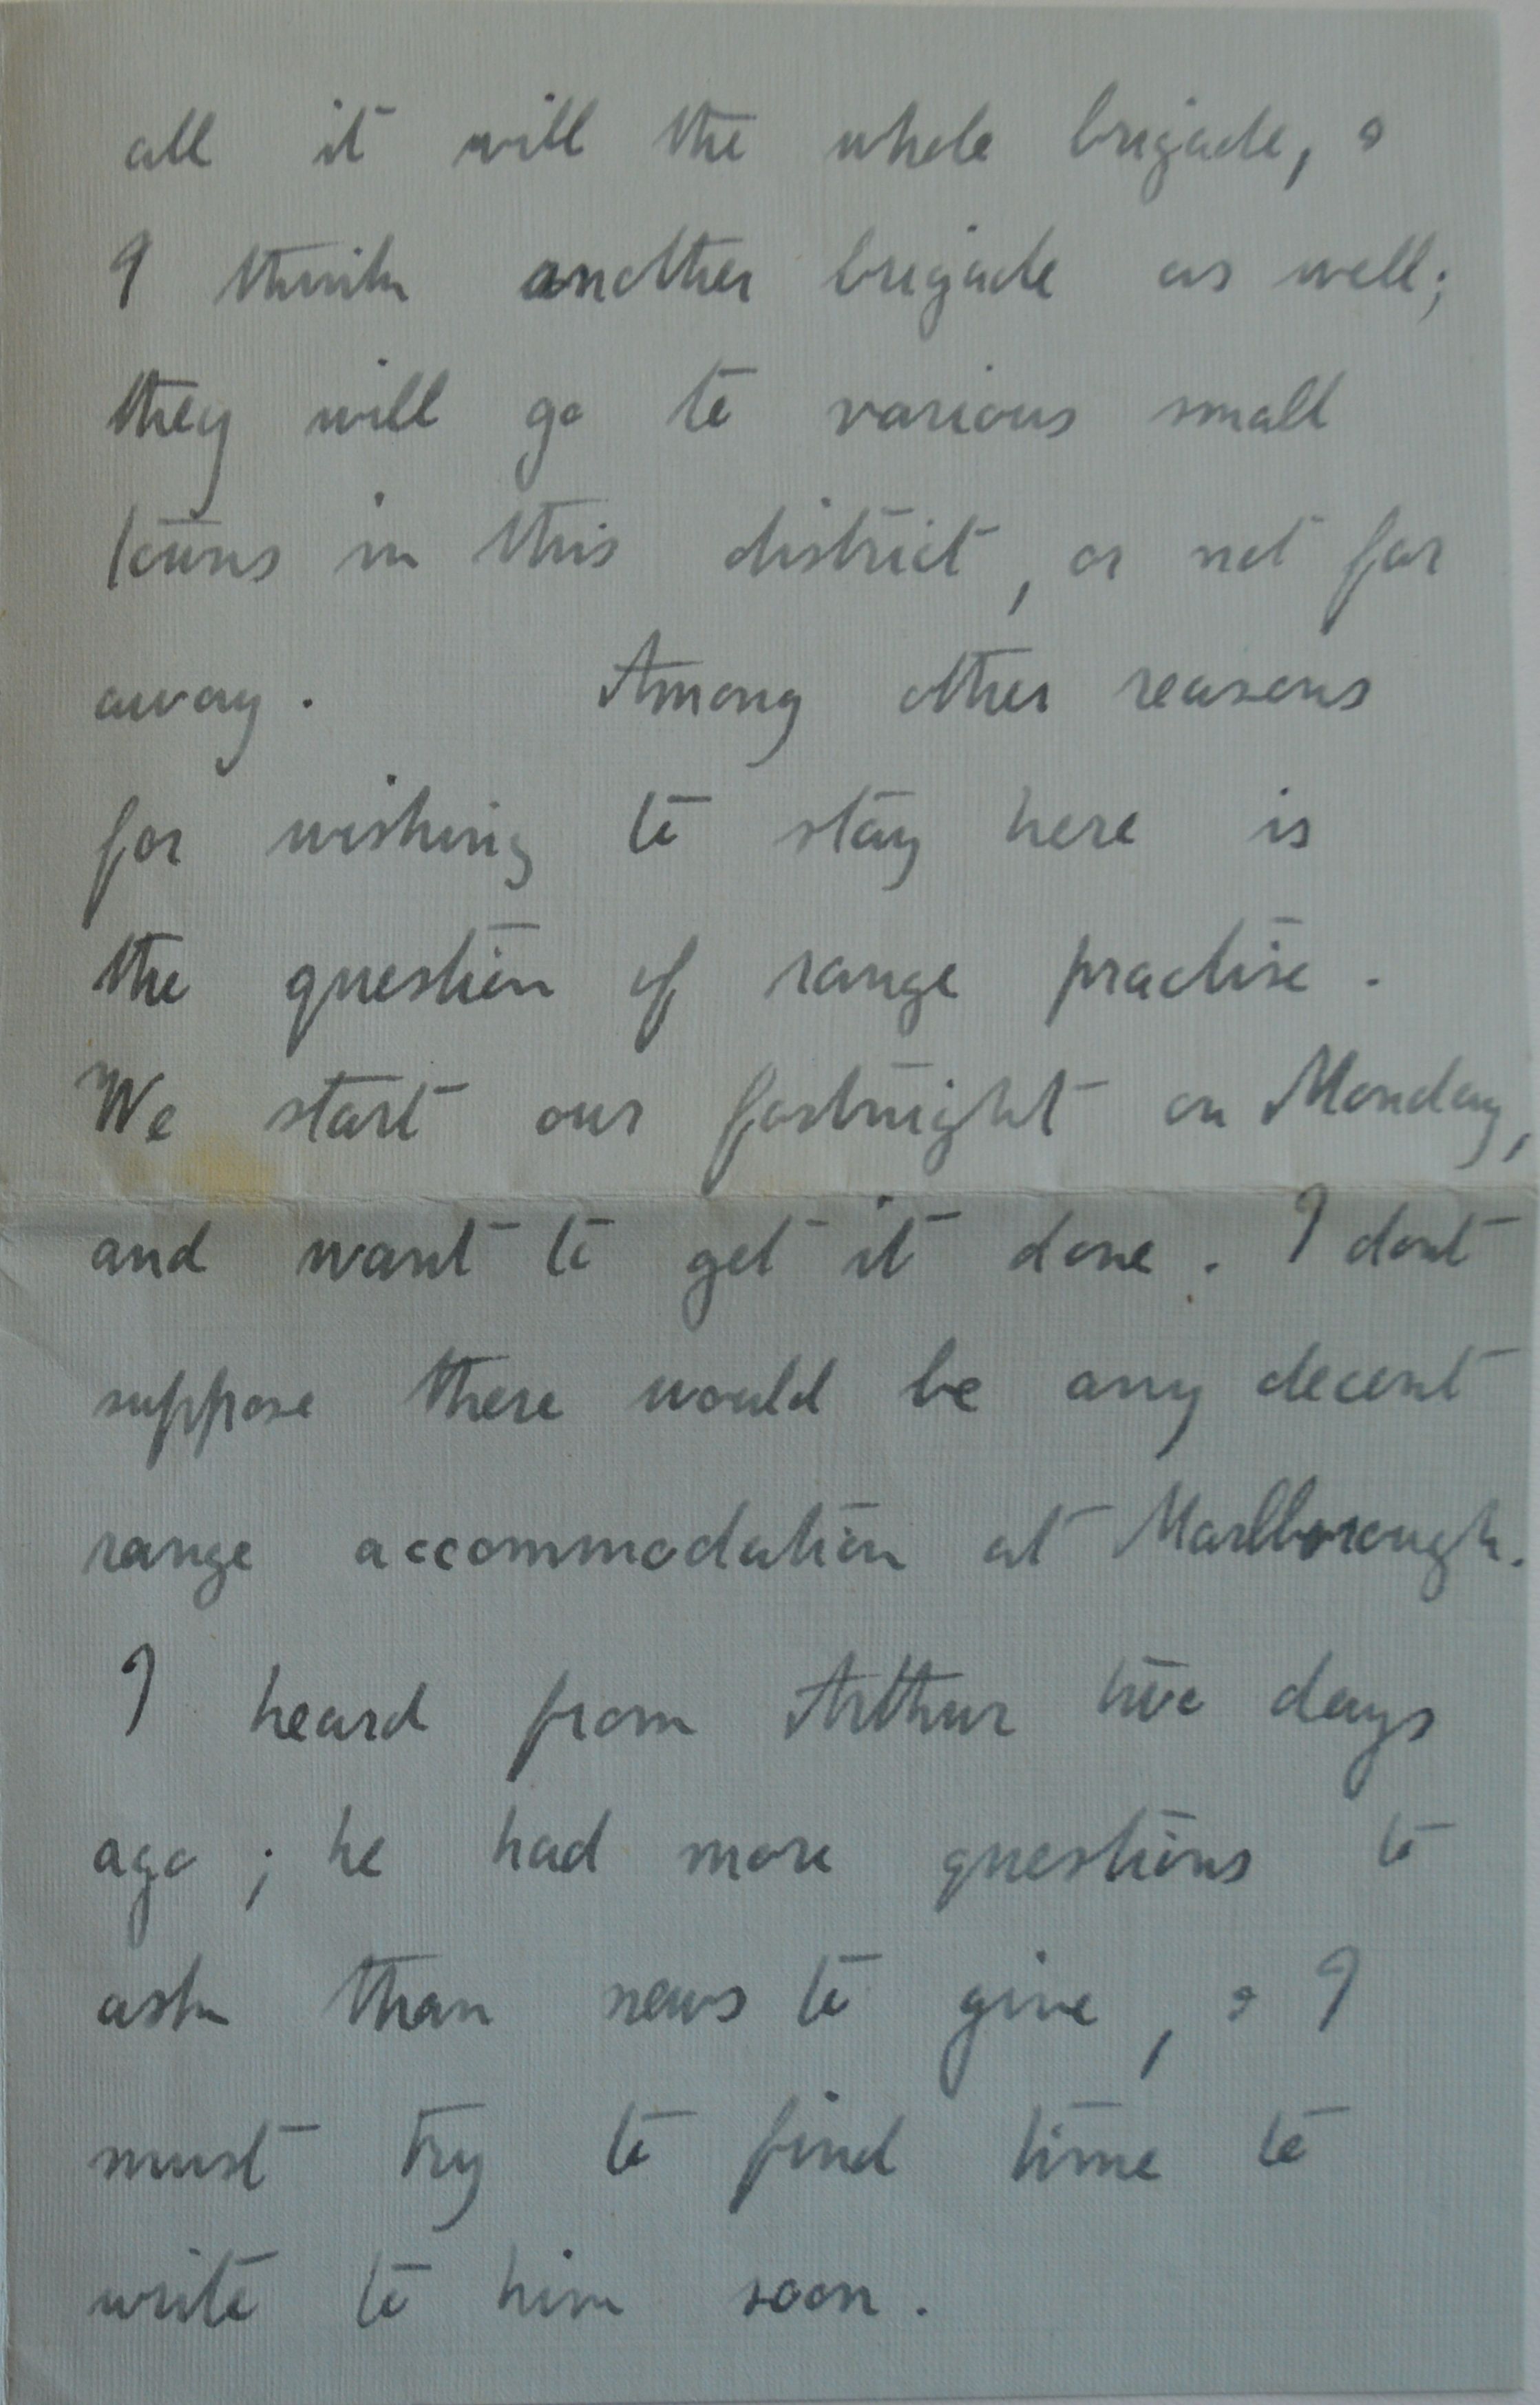 all it will the whole brigade, &
I think another brigade as well;
they will go to various small
towns in this district, or not far
away. Among other reasons
for wishing to stay here is
the question of range practise.
We start our fortnight on Monday,
and want to get it done. I dont
suppose there would be any decent
range accommodation at Marlborough.
I heard from Arthur two days
ago; he had more questions to
ask than news to give, & I
must try to find time to
write to him soon.